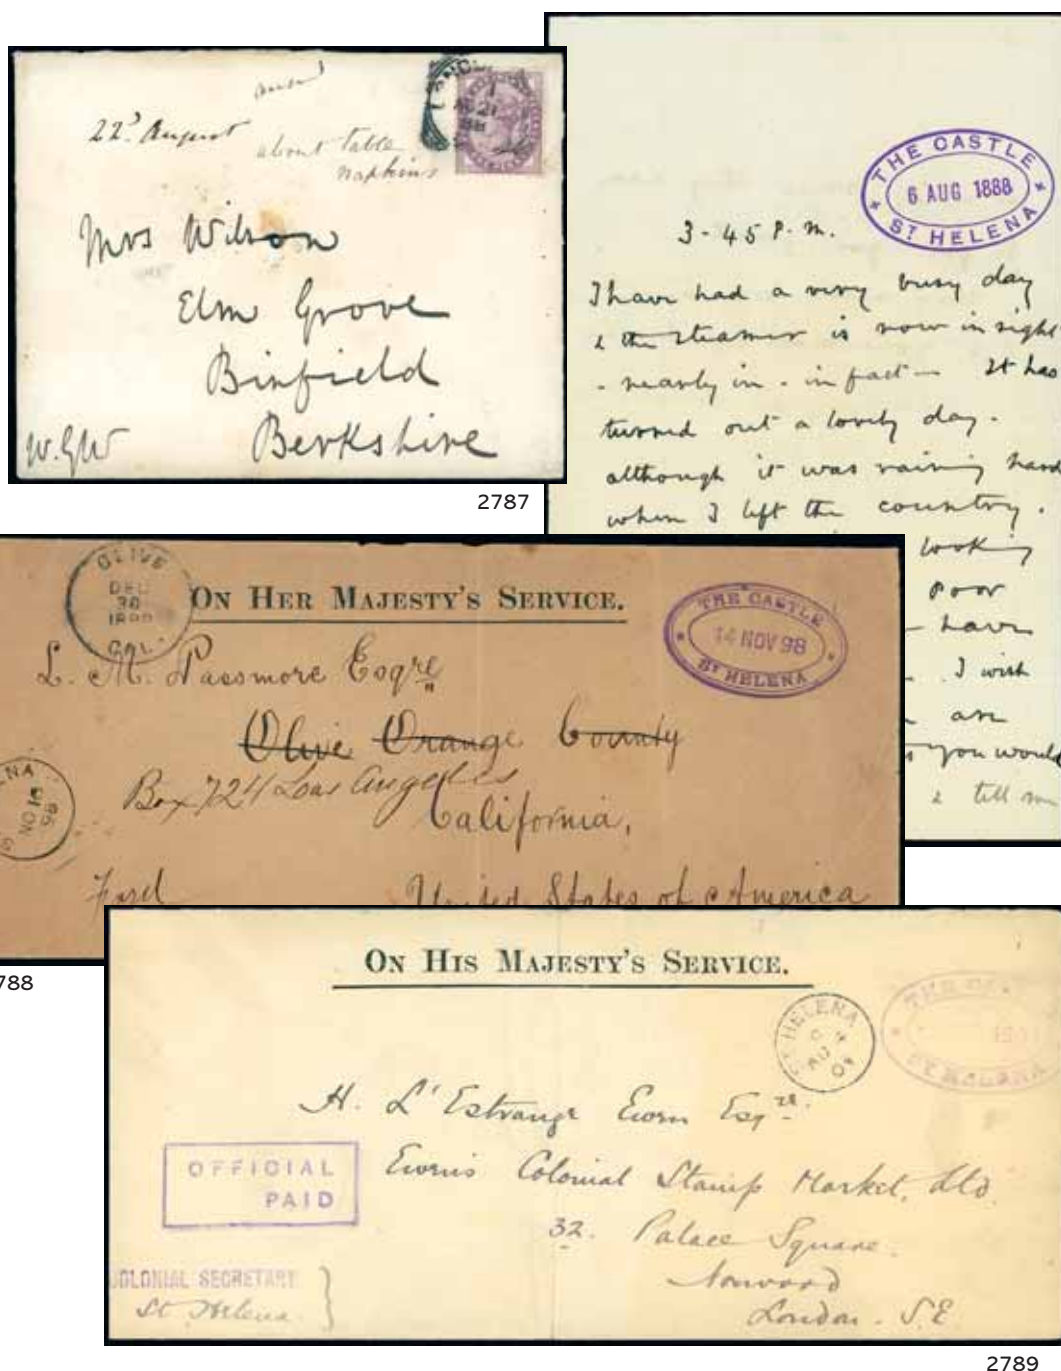 and
22d August
about table
napkins
AU 21
88
Mrs Wilson
Elm Grove
Binfield
Berkshire
W.G.W
2787
THE CASTLE
6 AUG 1888
ST HELENA
3-45 P.m.
I have had a very busy day
& the steamer is now in sight
- nearly in - in fact - It has
turned out a lovely day -
although it was raining hard
when I left the country.
looking
poor
have
I wish
are
you would
& tell me
OLIVE
DEC
30
CAL.
ON HER MAJESTY'S SERVICE.
THE CASTLE
14 NOV 98
ST HELENA
L. M. Passmore Esqre
Olive Orange County
Box 724 Los Angeles
California,
United States of America
NO 16
98
788
ON HIS MAJESTY'S SERVICE.
ST HELENA
C
AU
04
THE CAS
ST HELENA
H. L'Estrange Ewen Esqre.
Ewen's Colonial Stamp Market, Ltd
32. Palace Square.
Norwood
London. S.E.
OFFICIAL
PAID
COLONIAL SECRETARY
St Helena.
2789